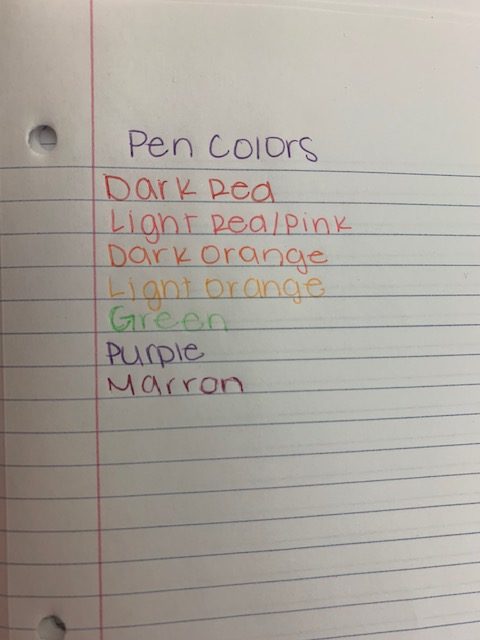 Pen Colors
Dark Red
Light Red/Pink
Dark Orange
Light Orange
Green
Purple
Marron